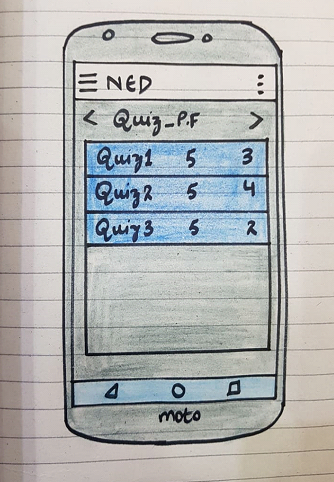 NED
Quiz_P.F
Quiz1 5 3
Quiz2 5 4
Quiz3 5 2
moto